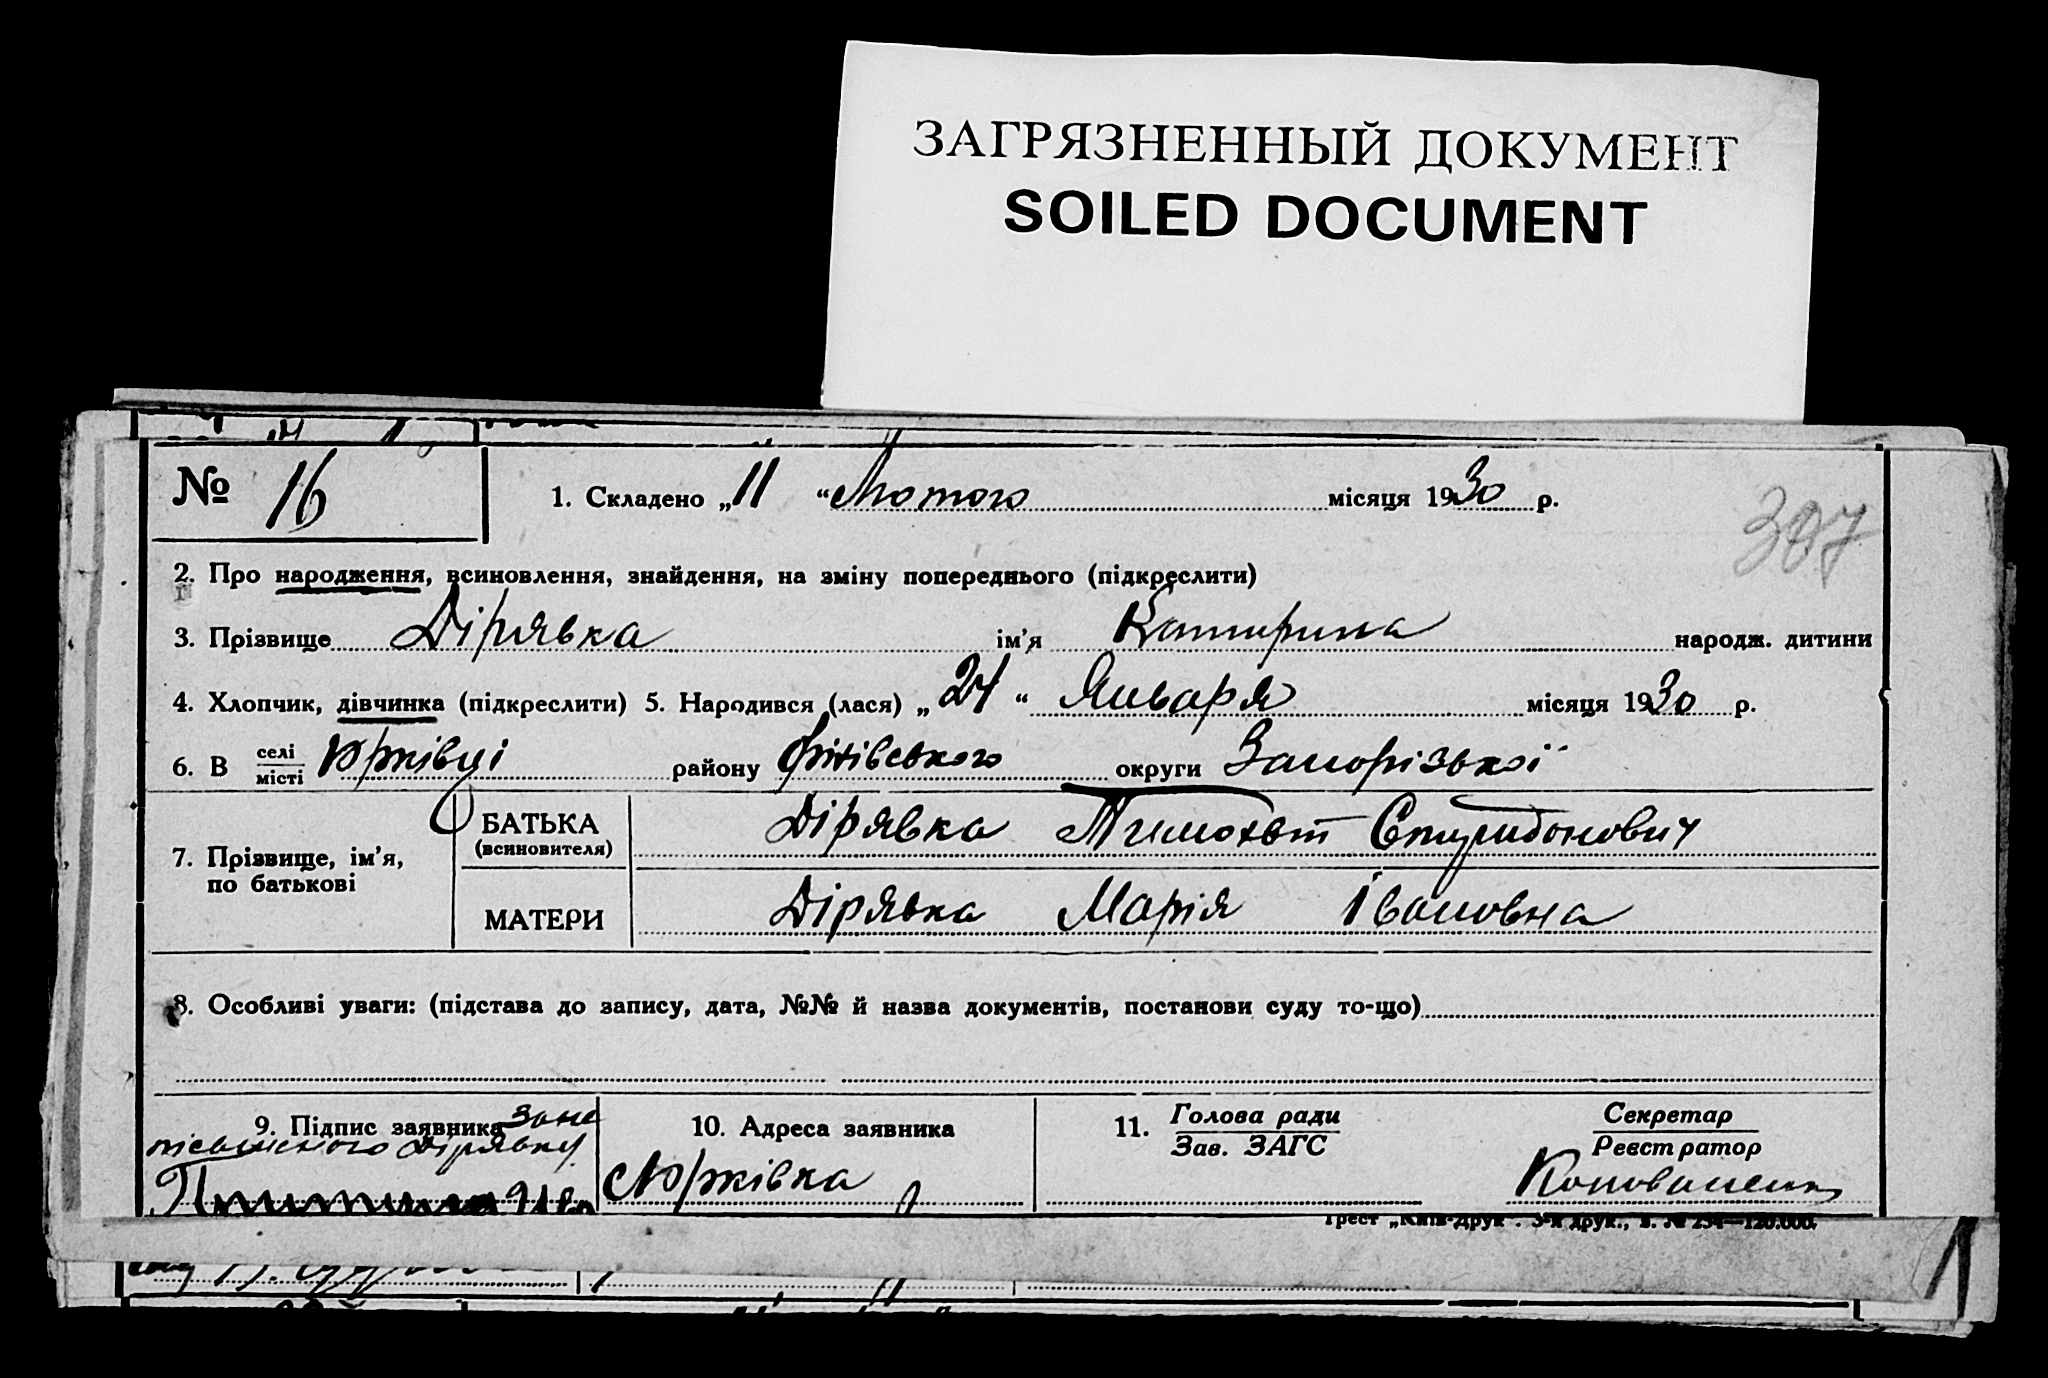 ЗАГРЯЗНЕННЫЙ ДОКУМЕНТ
SOILED DOCUMENT
№ 16
1. Складено „11“ Лютого місяця 1930 р.
307
2. Про народження, всиновлення, знайдення, на зміну попереднього (підкреслити)
3. Прізвище Дірявка ім’я Катирина народж. дитини
4. Хлопчик, дівчинка (підкреслити) 5. Народився (лася) „24“ Января місяця 1930 р.
6. В селі місті Юрківці району округи Запорізької
7. Прізвище, ім’я, по батькові
БАТЬКА (всиновителя) Дірявка Спиридонович
МАТЕРИ Дірявка Марія Івановна
8. Особливі уваги: (підстава до запису, дата, №№ й назва документів, постанови суду то-що)
9. Підпис заявника за не
письменого Дірявку
10. Адреса заявника
с Юрківка
11. Голова ради
Зав. ЗАГС
Секретар
Реєстратор
Трест „Київ-Друк“. 3-я друк., з. № 254—120.000.